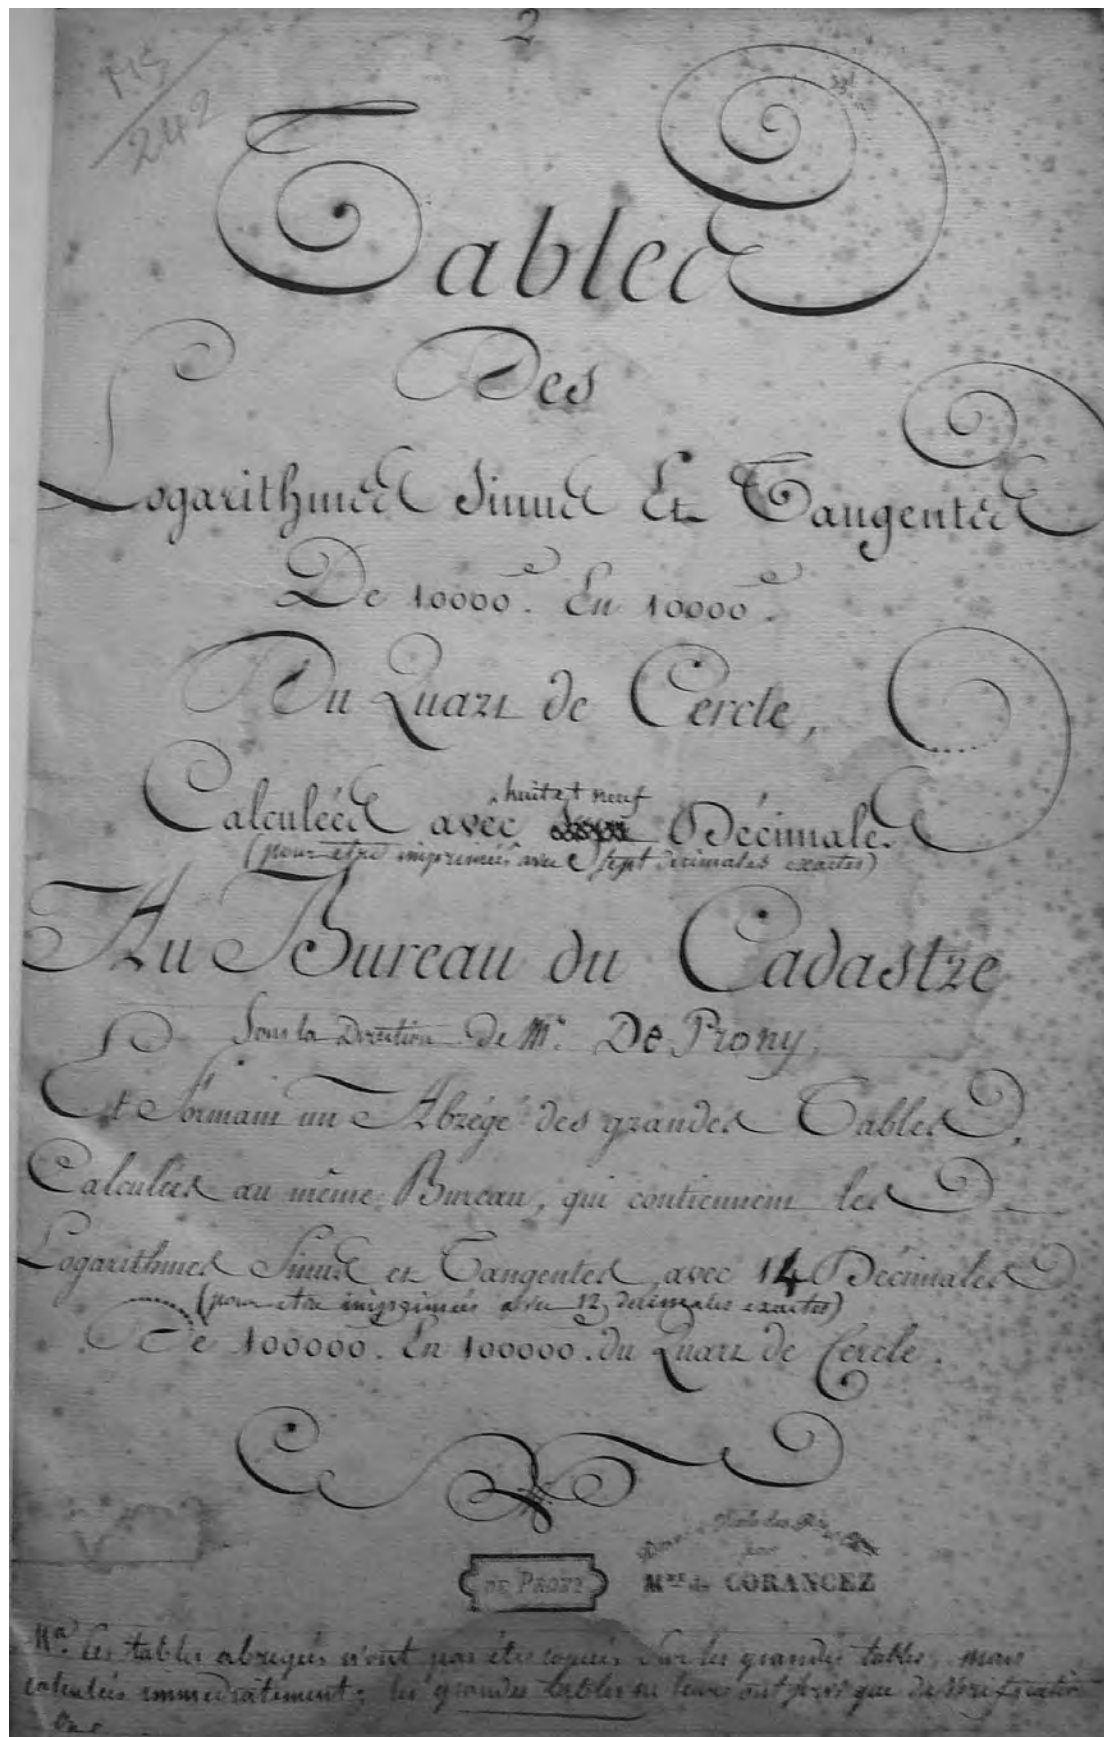 2
MS
242
Tables
Des
Logarithmes Sinus Et Tangentes
De 10000.e En 10000.e
Du Quart de Cercle,
huit et neuf
Calculées avec Décimales
(pour etre imprimées avec sept décimales exactes)
Au Bureau du Cadastre
Sous la Direction de Mr. De Prony,
Et Formant un Abrégé des grandes Tables,
Calculées au même Bureau, qui contiennent les
Logarithmes Sinus et Tangentes avec 14 Décimales
(pour etre imprimées avec 12 decimales exactes)
De 100000. En 100000. du Quart de Cercle.
par
DE PRONY
Mme de CORANCEZ
Na. les tables abregées n'ont pas été copiées sur les grandes tables, mais
calculées immediatement; les grandes tables ne leurs ont servi que de verification